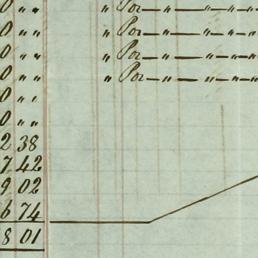 0 " " " Por — " — " — " — "
0 " " " Por — " — " — " — "
0 " " " Por — " — " — " — "
0 " " " Por — " — " — " — "
0 " "
0 " "
2 38
7 42
9 02
6 74
8 01